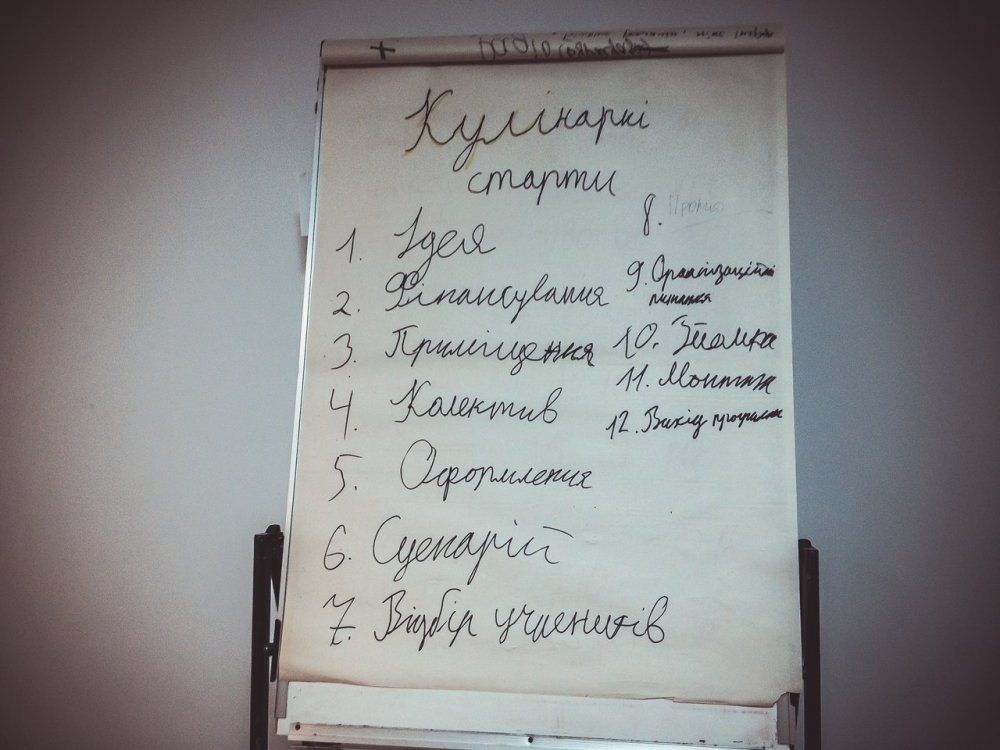 Кулінаркі
старти
1. Ідея
2. Фінансування
3. Приміщення
4. Колектив
5. Оформлення
6. Сценарій
7. Відбір учасників
8. Промо
9. Організаційні
питання
10. Зйомка
11. Монтаж
12. Вихід програми